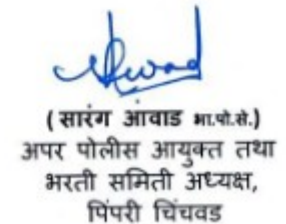 (सारंग आंवाड भा.पो.से.)
अपर पोलीस आयुक्त तथा
भरती समिती अध्यक्ष,
पिंपरी चिंचवड